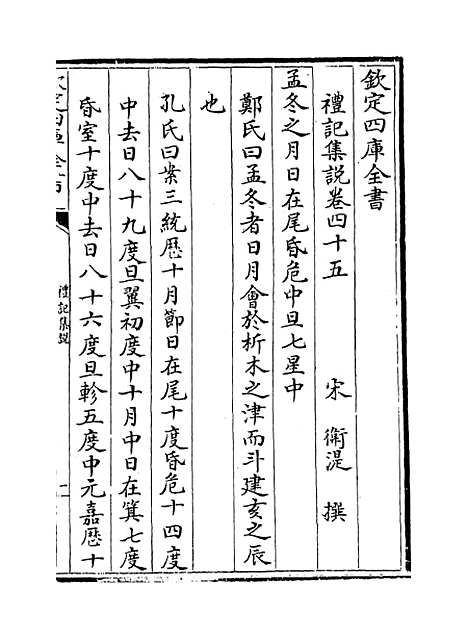 欽定四庫全書
禮記集說卷四十五 宋 衛湜 撰
孟冬之月日在尾昏危中旦七星中
鄭氏曰孟冬者日月會於析木之津而斗建亥之辰
也
孔氏曰案三統歷十月節日在尾十度昏危十四度
中去日八十九度旦翼初度中十月中日在箕七度
昏室十度中去日八十六度旦軫五度中元嘉歷十
欽定四庫全書
禮記集說